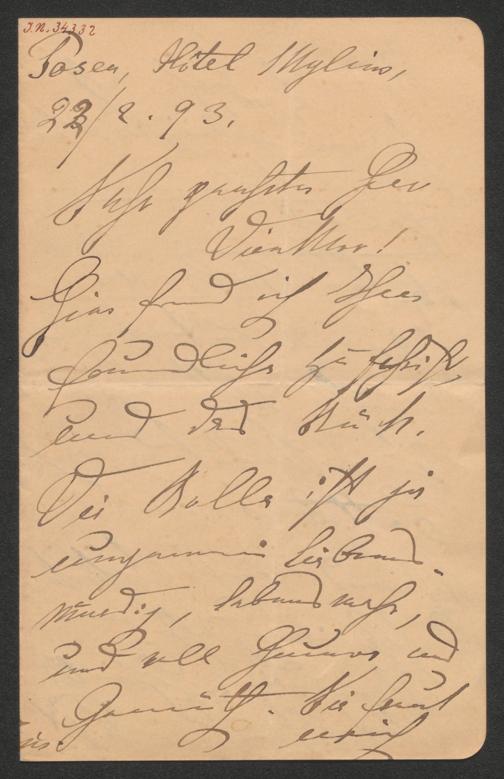 I.N. 34332
Posen, Hôtel Mylius,
22/2. 93.
Sehr geehrter Herr
Direktor!
Hier fand ich Ihre
freundliche Zuschrift
und das Stück.
Die Rolle ist ja
ungemein liebens-
würdig, lebenswahr,
und voll Humor und
Gemüth. Sie freut
mich